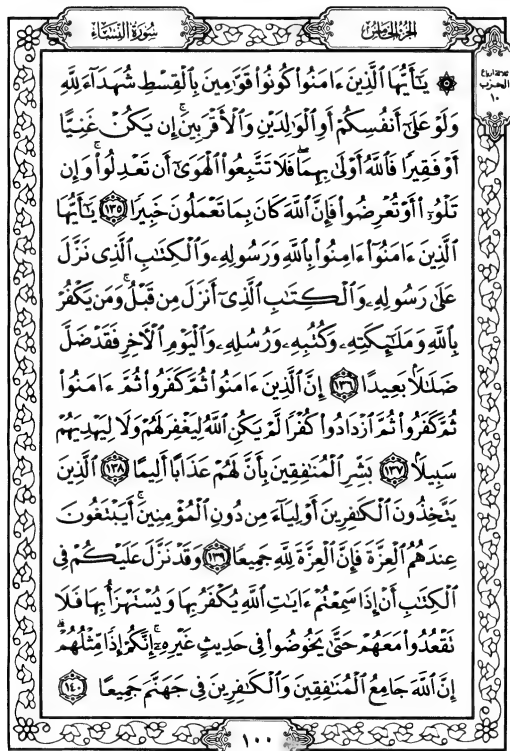 الجزء الخامس
سورة النساء
ثلاثة أرباع
الحزب
١٠
۞ يَـٰٓأَيُّهَا ٱلَّذِينَ ءَامَنُوا۟ كُونُوا۟ قَوَّٰمِينَ بِٱلْقِسْطِ شُهَدَآءَ لِلَّهِ
وَلَوْ عَلَىٰٓ أَنفُسِكُمْ أَوِ ٱلْوَٰلِدَيْنِ وَٱلْأَقْرَبِينَ ۚ إِن يَكُنْ غَنِيًّا
أَوْ فَقِيرًا فَٱللَّهُ أَوْلَىٰ بِهِمَا ۖ فَلَا تَتَّبِعُوا۟ ٱلْهَوَىٰٓ أَن تَعْدِلُوا۟ ۚ وَإِن
تَلْوُۥٓا۟ أَوْ تُعْرِضُوا۟ فَإِنَّ ٱللَّهَ كَانَ بِمَا تَعْمَلُونَ خَبِيرًا ١٣٥ يَـٰٓأَيُّهَا
ٱلَّذِينَ ءَامَنُوٓا۟ ءَامِنُوا۟ بِٱللَّهِ وَرَسُولِهِۦ وَٱلْكِتَـٰبِ ٱلَّذِى نَزَّلَ
عَلَىٰ رَسُولِهِۦ وَٱلْكِتَـٰبِ ٱلَّذِىٓ أَنزَلَ مِن قَبْلُ ۚ وَمَن يَكْفُرْ
بِٱللَّهِ وَمَلَـٰٓئِكَتِهِۦ وَكُتُبِهِۦ وَرُسُلِهِۦ وَٱلْيَوْمِ ٱلْـَٔاخِرِ فَقَدْ ضَلَّ
ضَلَـٰلًۢا بَعِيدًا ١٣٦ إِنَّ ٱلَّذِينَ ءَامَنُوا۟ ثُمَّ كَفَرُوا۟ ثُمَّ ءَامَنُوا۟
ثُمَّ كَفَرُوا۟ ثُمَّ ٱزْدَادُوا۟ كُفْرًا لَّمْ يَكُنِ ٱللَّهُ لِيَغْفِرَ لَهُمْ وَلَا لِيَهْدِيَهُمْ
سَبِيلًۢا ١٣٧ بَشِّرِ ٱلْمُنَـٰفِقِينَ بِأَنَّ لَهُمْ عَذَابًا أَلِيمًا ١٣٨ ٱلَّذِينَ
يَتَّخِذُونَ ٱلْكَـٰفِرِينَ أَوْلِيَآءَ مِن دُونِ ٱلْمُؤْمِنِينَ ۚ أَيَبْتَغُونَ
عِندَهُمُ ٱلْعِزَّةَ فَإِنَّ ٱلْعِزَّةَ لِلَّهِ جَمِيعًا ١٣٩ وَقَدْ نَزَّلَ عَلَيْكُمْ فِى
ٱلْكِتَـٰبِ أَنْ إِذَا سَمِعْتُمْ ءَايَـٰتِ ٱللَّهِ يُكْفَرُ بِهَا وَيُسْتَهْزَأُ بِهَا فَلَا
تَقْعُدُوا۟ مَعَهُمْ حَتَّىٰ يَخُوضُوا۟ فِى حَدِيثٍ غَيْرِهِۦٓ ۚ إِنَّكُمْ إِذًا مِّثْلُهُمْ ۗ
إِنَّ ٱللَّهَ جَامِعُ ٱلْمُنَـٰفِقِينَ وَٱلْكَـٰفِرِينَ فِى جَهَنَّمَ جَمِيعًا ١٤٠
١٠٠